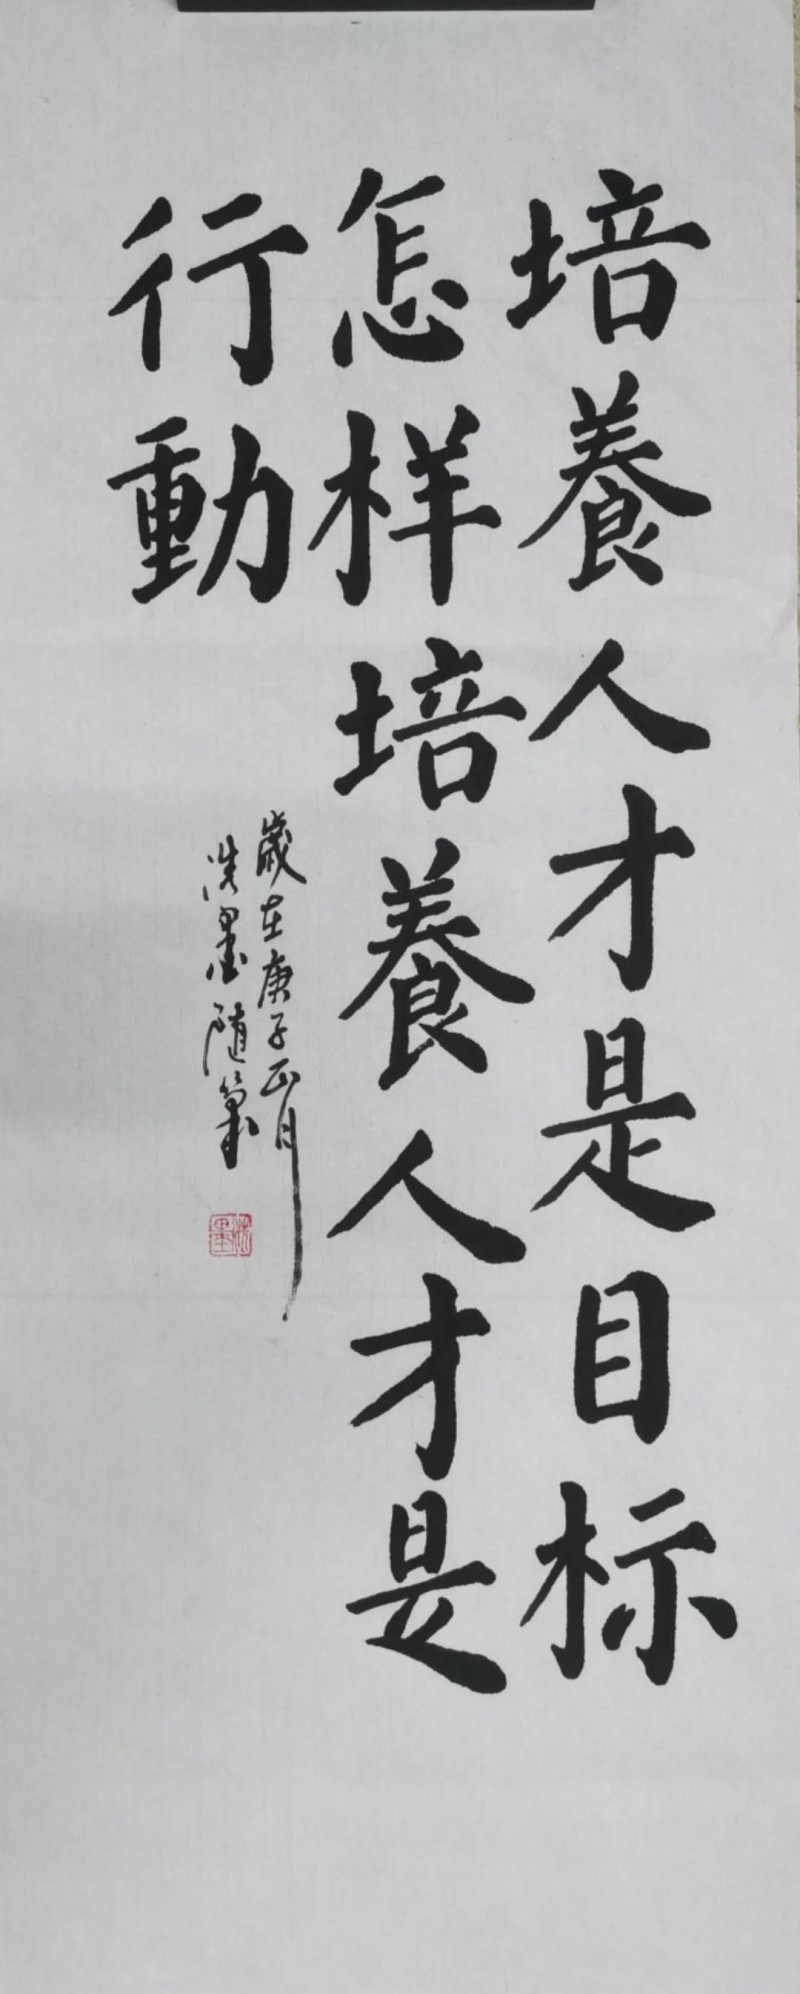 培養人才是目标
怎样培養人才是
行動
歲在庚子正月
洗墨随筆